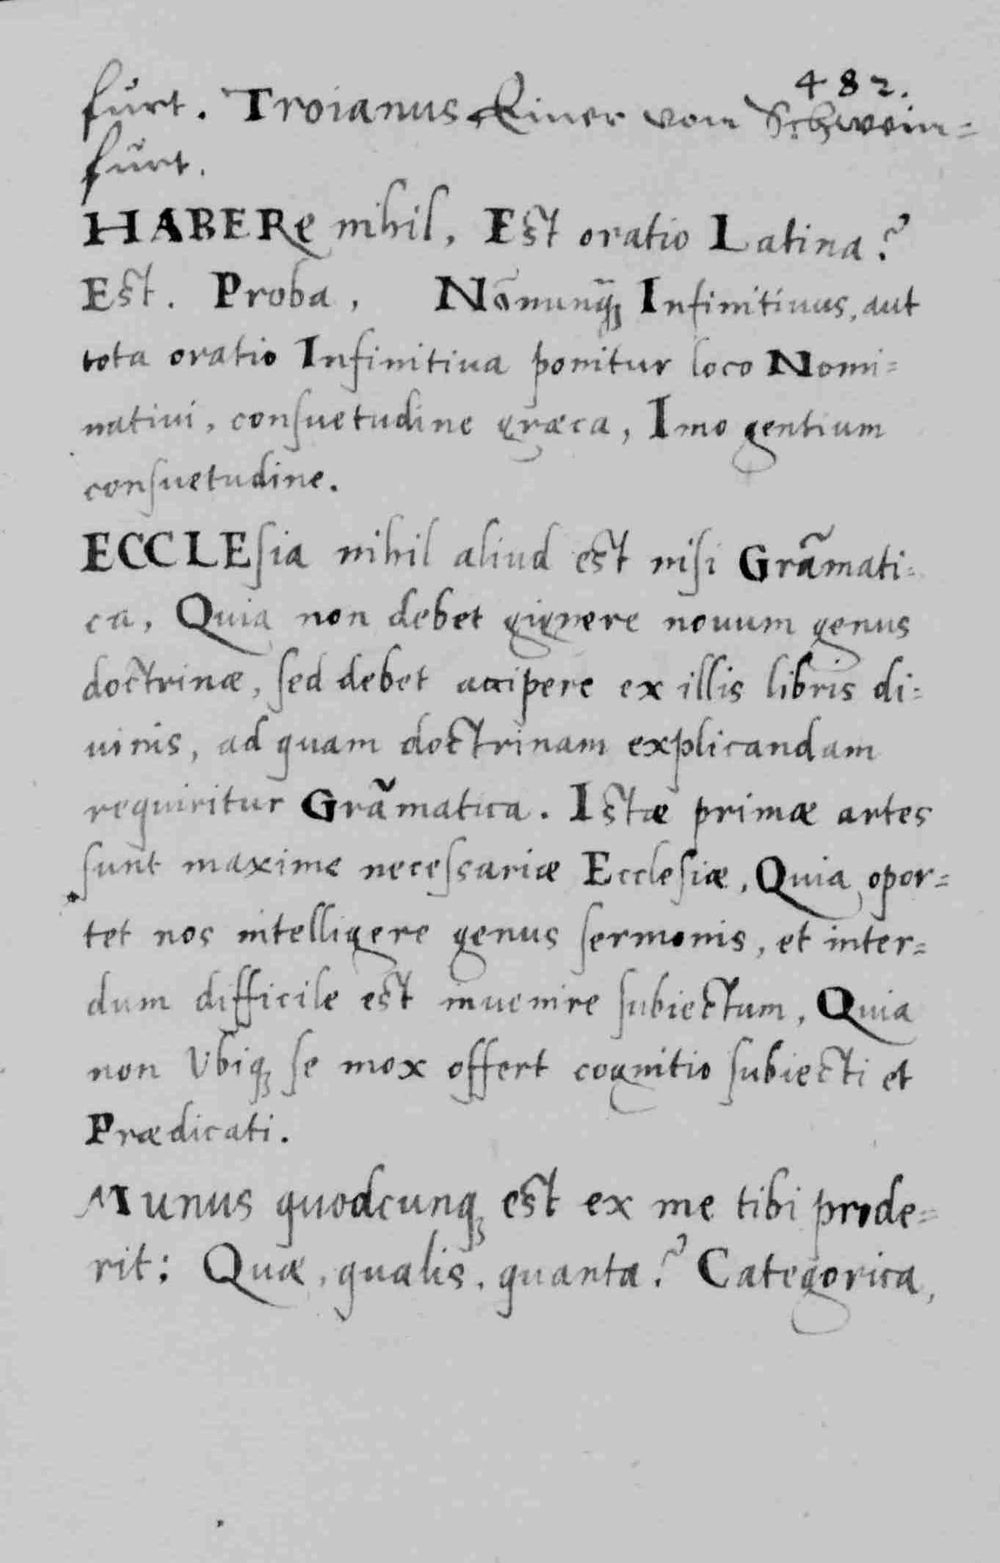 482.
furt. Troianus Einer von Schwein=
furt.
HABERe nihil, Est oratio Latina?
Est. Proba, Nōnunq̃ꝫ Infinitiuus, aut
tota oratio Infinitiua ponitur loco Nomi=
natiui, consuetudine græca, Imo gentium
consuetudine.
ECCLEsia nihil aliud est nisi Gram̃ati=
ca, Quia non debet gignere nouum genus
doctrinæ, sed debet accipere ex illis libris di=
uinis, ad quam doctrinam explicandam
requiritur Gram̃atica. Istæ primæ artes
sunt maxime necessariæ Ecclesiæ, Quia opor=
tet nos intelligere genus sermonis, et inter=
dum difficile est inuenire subiectum, Quia
non Vbiqꝫ se mox offert cognitio subiecti et
Prædicati.
Munus quodcunqꝫ est ex me tibi prode=
rit: Quæ, qualis, quanta? Categorica,